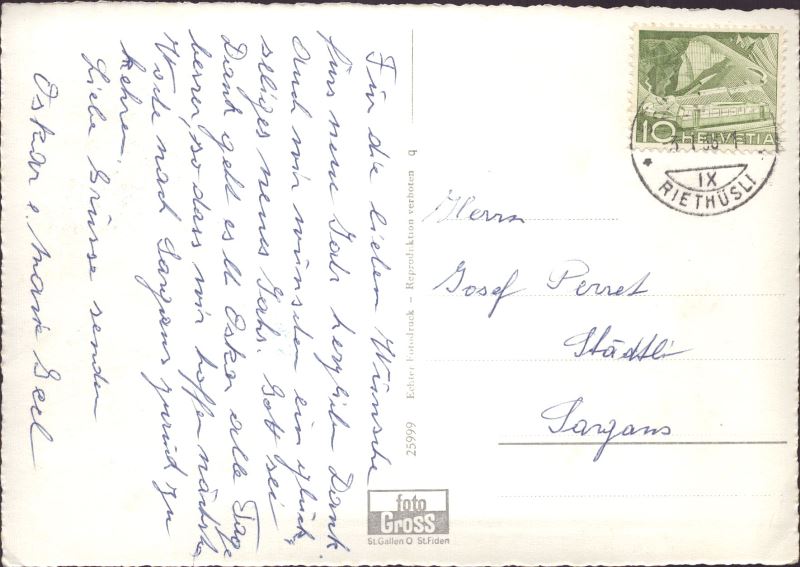 Für die lieben Wünsche
fürs neue Jahr herzlichen Dank.
Auch wir wünschen ein glück-
seliges neues Jahr. Gott sei
Dank geht es lb Oskar alle Tage
besser, so dass wir hoffen nächste
Woche nach Sargans zurück zu
kehren.
Liebe Grüsse senden
Oskar u. Marie
25999 Echter Fotodruck – Reproduktion verboten q
foto
Gross
St.Gallen O St.Fiden
10 HELVETIA
IX
RIETHÜSLI
Herrn
Josef Perret
Städtli
Sargans